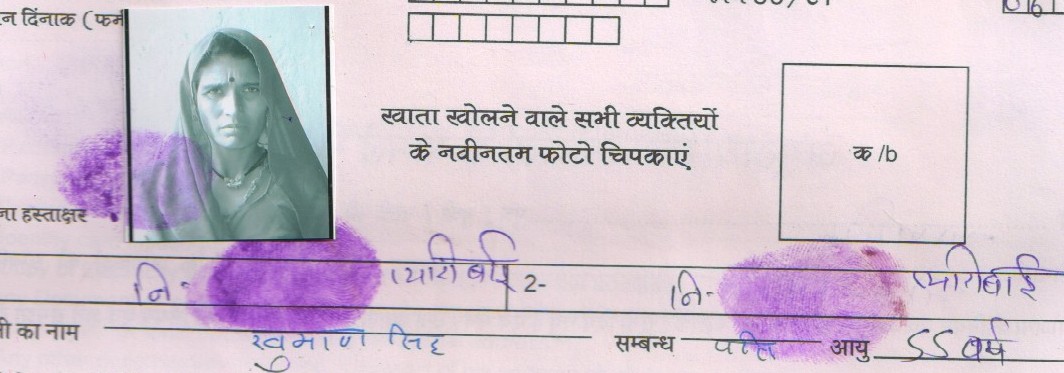 न दिनांक (फर्म
खाता खोलने वाले सभी व्यक्तियों
के नवीनतम फोटो चिपकाएं
क /b
ना हस्ताक्षर
नि- प्यारी बाई 2- नि- प्यारी बाई
ी का नाम खुमाण सिंह सम्बन्ध पति आयु 55 वर्ष